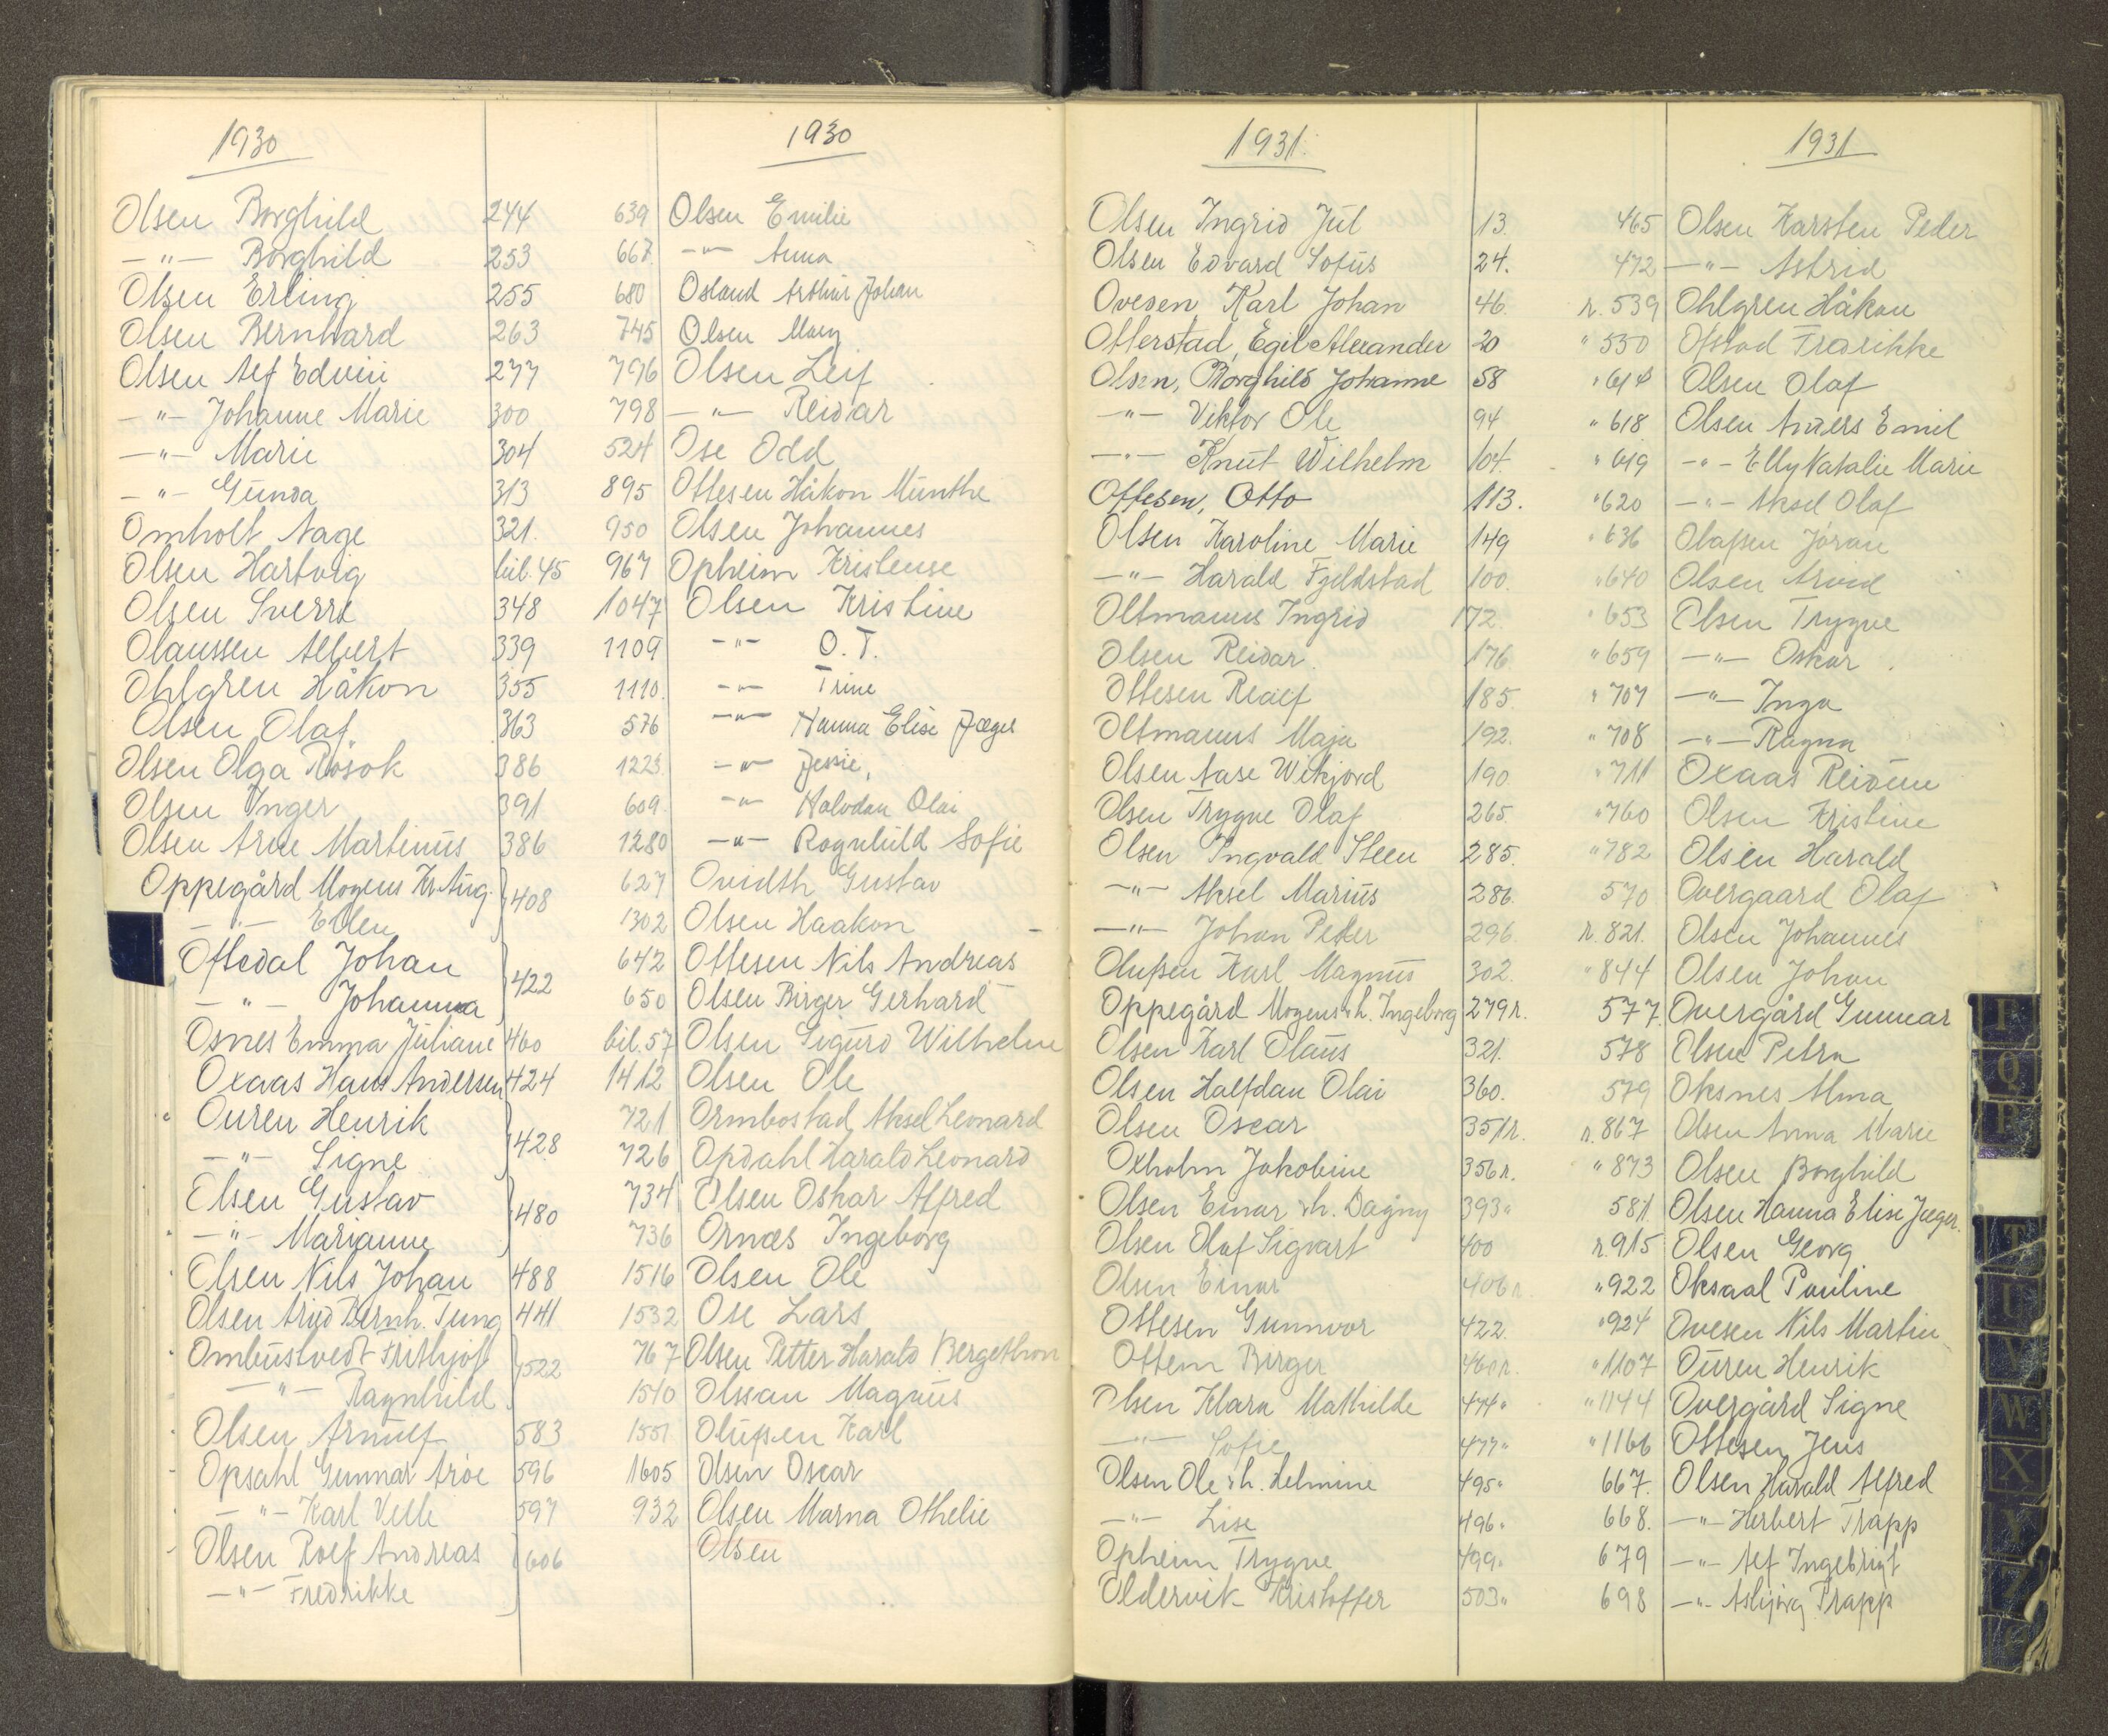 1930
Olsen Borghild 244
—"— Borghild 253
Olsen Erling 255
Olsen Bernhard 263
Olsen Alf Edvin 277
—"— Johanne Marie 300
—"— Marie 304
—"— Gunda 313
Omholt Aage 321.
Olsen Hartvig bil. 45
Olsen Sverre 348
Olaussen Albert 339
Ohlgren Håkon 355
Olsen Olaf 363
Olsen Olga Røsok 386
Olsen Inger 391
Olsen Arne Martinus 386
Oppegård Mogens Kr. Aug. 408
—"— Ellen
Oftedal Johan 422
—"— Johanna
Osnes Emma Juliane 460
Oxaas Hans Andersen 424
Ouren Henrik 428
—"— Signe
Olsen Gustav 480
—"— Marianne
Olsen Nils Johan 488
Olsen Arvid Bernh. Tung 441
Ombustvedt Frithjof 522
—"— Ragnhild
Olsen Arnulf 583
Opsahl Gunnar Arve 596
—"— Karl Velle 597
Olsen Rolf Andreas 606
—"— Fredrikke
1930
639 Olsen Emilie
667 —"— Anna
680 Osland Arthur Johan
745 Olsen Mary
796 Olsen Leif
798 —"— Reidar
524 Ose Odd
895 Ottesen Håkon Munthe
950 Olsen Johannes
967 Opheim Kristense
1047 Olsen Kristine
1109 —"— O. T.
1110. —"— Trine
576 —"— Hanna Elise Jæger
1225. —"— Jessie,
609. —"— Halvdan Olai
1280 —"— Rognhild Sofie
627 Ovidth Gustav
1302 Olsen Haakon
642 Ottesen Nils Andreas
650 Olsen Birger Gerhard
bil. 57 Olsen Sigurd Wilhelm
1412 Olsen Ole
721 Ormbostad Aksel Leonard
726 Opdahl Harald Leonard
734 Olsen Oskar Alfred
736 Ornæs Ingeborg
1516 Olsen Ole
1532 Ose Lars
767 Olsen Petter Harald Bergethron
1540 Olssan Magnus
1551 Olufsen Karl
1605 Olsen Oscar
932 Olsen Marna Othelie
Olsen
1931.
Olsen Ingrid Jul 13.
Olsen Edvard Sofus 24.
Ovesen Karl Johan 46.
Otterstad, Egil Alexander 20
Olsen, Borghild Johanne 58
—"— Viktor Ole 94
—"— Knut Wilhelm 104.
Ottesen, Otto 113.
Olsen Karoline Marie 149
—"— Harald Fjeldstad 100.
Oltmanns Ingrid 172.
Olsen Reidar. 176.
Ottesen Redlf 185.
Oltmanns Maja 192.
Olsen Aase Wikjord 190.
Olsen Trygve Olaf 265.
Olsen Ingvald Steen 285.
—"— Aksel Marius 286.
—"— Johan Peder 296.
Olufsen Karl Magnus 302.
Oppegård Mogens & h. Ingeborg 279 r.
Olsen Karl Olaus 321.
Olsen Halfdan Olai 360.
Olsen Oscar 351 r.
Oxholm Jakobine 356 r.
Olsen Einar & h. Dagny 393 "
Olsen Olaf Sigvart 400
Olsen Einar 406 r.
Ottesen Gunnvor 422.
Ottem Birger 460 r.
Olsen Klara Mathilde 474 "
—"— Sofie 477 "
Olsen Ole & h. Helmine 495 "
—"— Lise 496 "
Opheim Trygve 499 "
Oldervik Kristoffer 503 "
1931
465 Olsen Karsten Peder
472 —"— Astrid
r. 539 Ohlgren Håkon
" 550 Ofstad Fredrikke
" 614 Olsen Olaf
" 618 Olsen Anders Emil
" 619 —"— Elly Natalie Marie
" 620 —"— Aksel Olaf
" 636 Olafsen Joran
" 640 Olsen Arvid
" 653 Olsen Trygve
" 659 —"— Oskar.
" 707 —"— Inga
" 708 —"— Ragna
" 711 Oxaas Reidun
" 760 Olsen Kristine
" 782 Olsen Harald
570 Overgaard Olaf
r. 821. Olsen Johannes
" 844 Olsen Johan
577. Overgård Gunnar
578 Olsen Petra
579 Oksnes Alma
r. 867 Olsen Anna Marie
" 873 Olsen Borghild
581. Olsen Hanna Elise Jæger.
r. 915 Olsen Georg
" 922 Oksaal Pauline
" 924 Ovesen Nils Martin
" 1107 Ouren Henrik
" 1144 Overgård Signe
" 1166 Ottesen Jens
667. Olsen Harald Alfred
668. —"— Herbert Trapp
679 —"— Alf Ingebrigt
698 —"— Asbjørg Trapp
P
Q
R
T
U
V
W
X
Y
Z